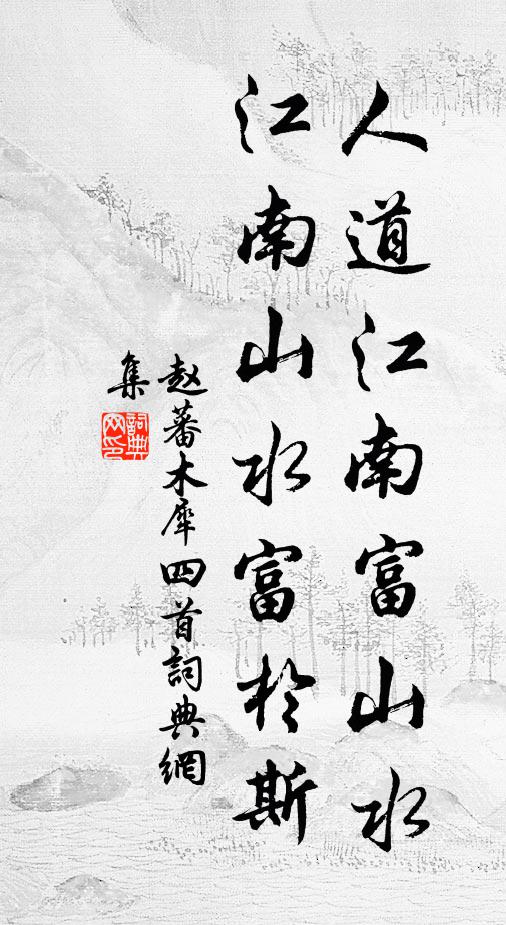 人道江南富山水
江南山水富於斯
赵蕃木犀四首詞典網
集
詞典
网印